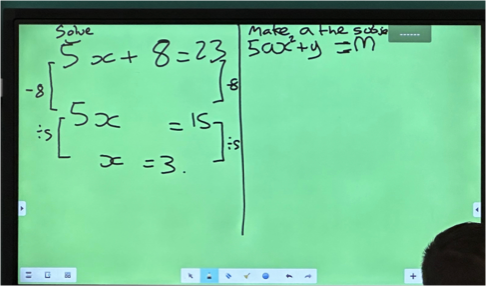 Solve
5x + 8 = 23
-8 -8
5x = 15
÷5 ÷5
x = 3.
Make a the
5ax²+y = m